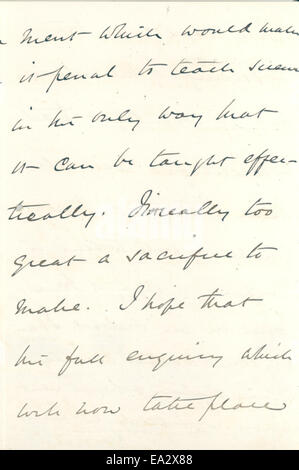 ment which would make
it penal to teach scien
in the only way that
it can be taught effec-
tually. It is really too
great a sacrifice to
make. I hope that
the full enquiry which
will now take place
EA2X88